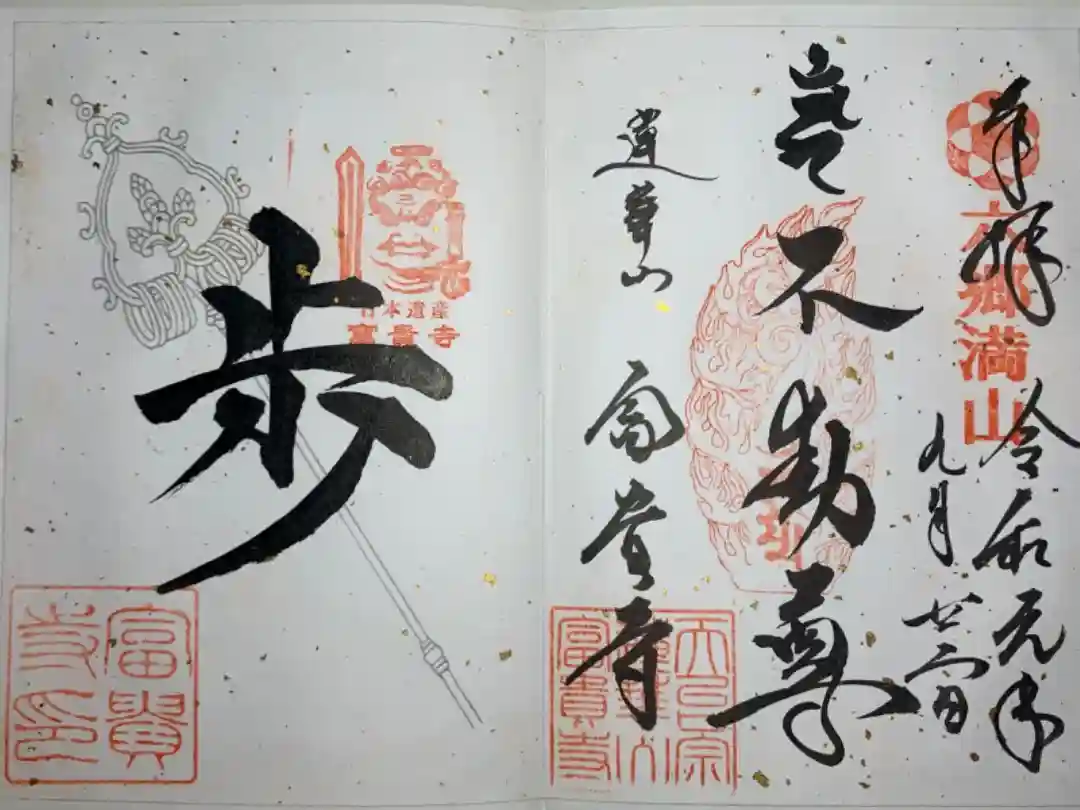 奉拝
六郷満山
令和元年
九月
不動尊
蓮華山
富貴寺
天台宗
蓮華山
富貴寺
日本遺産
富貴寺
歩
富貴
寺印